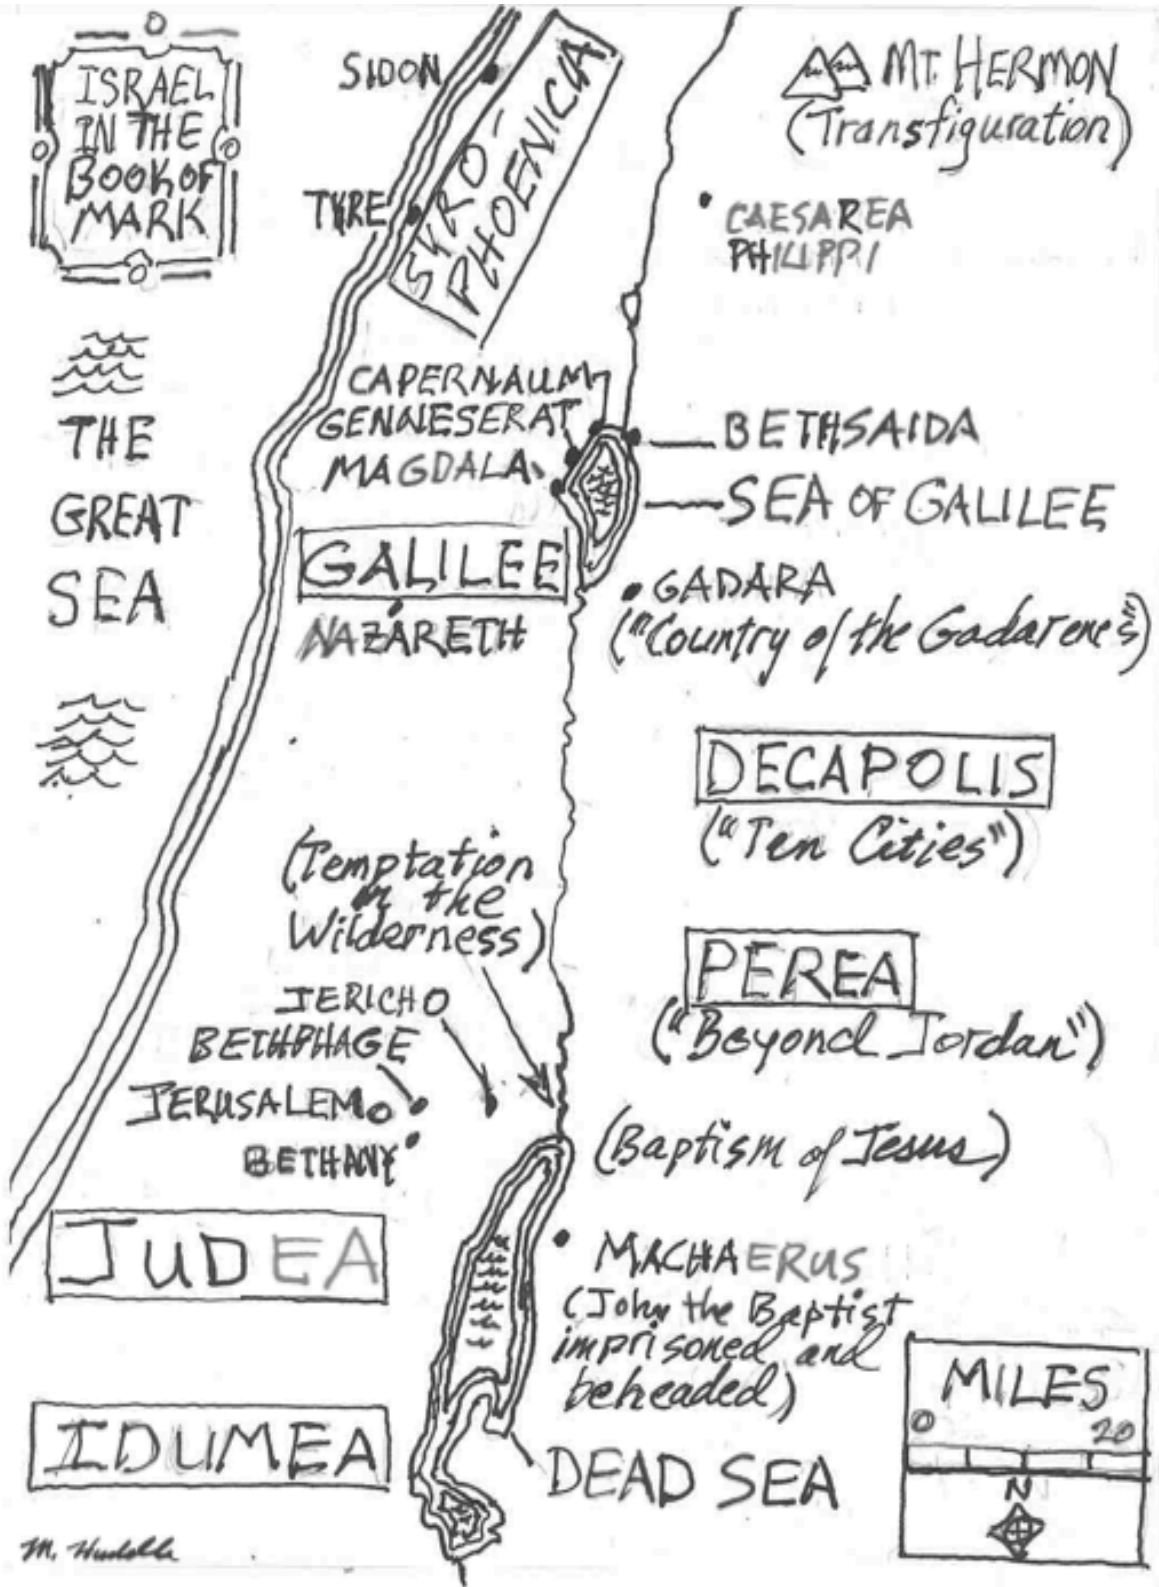 ISRAEL
IN THE
BOOK OF
MARK
SIDON
SYRO-
PHOENICIA
MT. HERMON
(Transfiguration)
TYRE
CAESAREA
PHILIPPI
THE
GREAT
SEA
CAPERNAUM
GENNESERAT
MAGDALA
BETHSAIDA
SEA OF GALILEE
GALILEE
NAZARETH
GADARA
("Country of the Gadarenes")
DECAPOLIS
("Ten Cities")
(Temptation
in the
Wilderness)
PEREA
("Beyond Jordan")
JERICHO
BETHPHAGE
JERUSALEM
BETHANY
(Baptism of Jesus)
JUDEA
MACHAERUS
(John the Baptist
imprisoned and
beheaded)
IDUMEA
DEAD SEA
MILES
0 20
N
M.